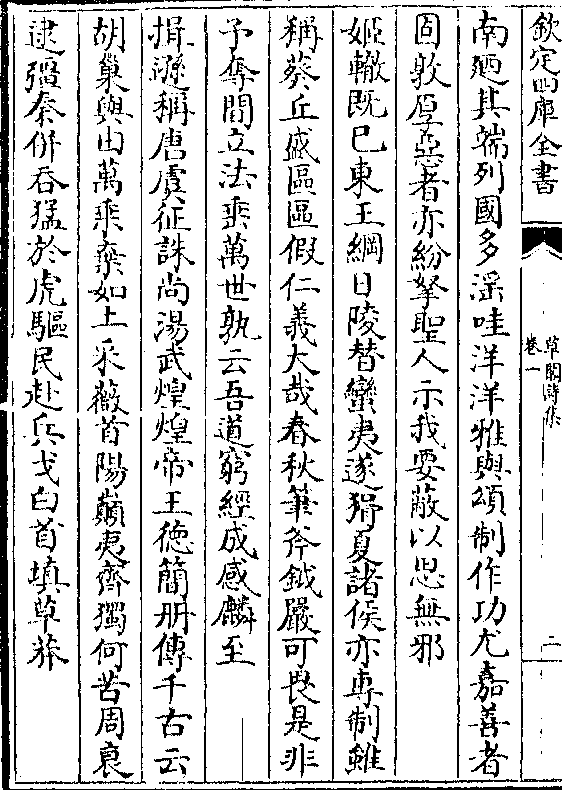 欽定四庫全書
草閣詩集
卷一
二
南廼其端列國多淫哇洋洋雅與頌制作功尤嘉善者
固敦厚惡者亦紛拏聖人示我要蔽以思無邪
姬轍既已東王綱日陵替蠻夷遂猾夏諸侯亦専制雖
稱葵丘盛區區假仁義大哉春秋筆斧鉞嚴可畏是非
予奪間立法垂萬世孰云吾道窮經成感麟至
揖遜稱唐虞征誅尚湯武煌煌帝王徳簡册傳千古云
胡巢與由萬乘棄如土采薇首陽巔夷齊獨何苦周衰
逮彊秦併吞猛於虎驅民赴兵戈白首填草莽